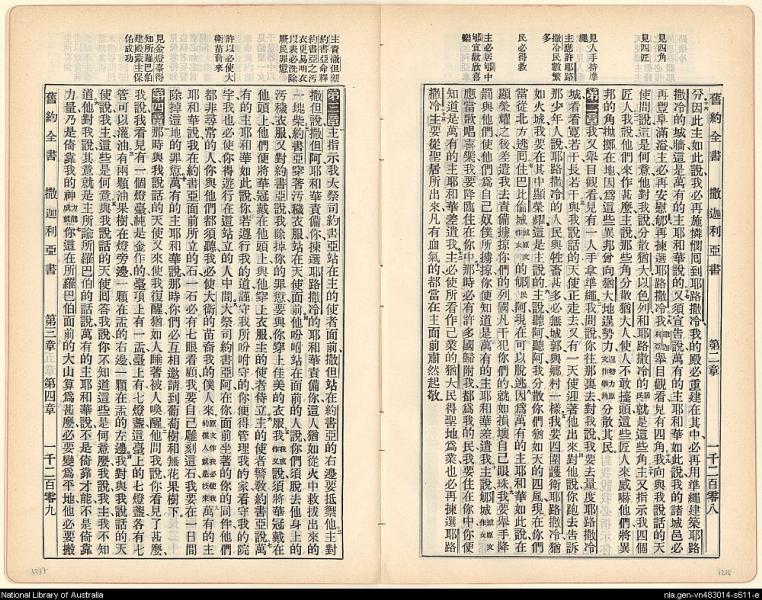 舊約全書 撒迦利亞書 第二章 一千二百零八
見四角
見四匠
見人手持準
繩
主應許耶路
撒冷民數繁
多
民必得救
分因此主如此說我必再施憐憫囘到耶路撒冷我的殿必重建在其中必再用準繩建築耶路
撒冷的城牆這是萬有的主耶和華說的又須宣告說萬有的主耶和華如此說我的諸城邑必
再豐阜滿溢主必再安慰郇再揀選耶路撒冷我舉目觀看見有四角我向與我說話的天
使問說這是何意他對我說分散猶大以色列和耶路撒冷的就是這些角主又指示我四個
匠人我說他們來作甚麼主說那些角分散猶大人使人不敢擡頭這些匠人來威嚇他們將異
邦的角拋擲在地因爲這些異邦曾向猶大地逞勢力分散其民
第二章我又舉目觀看見有一人手拿準繩我問說你往那裏去對我說我要去量度耶路撒冷
城看看寬若干長若干與我說話的天使正走去又有一天使迎著他出來對他說你跑去告訴
那少年人說耶路撒冷的人民與牲畜甚多必無城郭與鄉村一樣我要四圍護衛耶路撒冷
如火城我要在其中顯榮耀這是主說的主說聽阿聽阿我分散你們猶如天的四風現在你們
當從北方逃囘住巴比倫的郇民阿現在可以脫逃因爲萬有的主耶和華如此說在
顯榮耀之後差遣我去責備擄掠你們的列國凡干犯你們的就如損壞自己眼珠我要舉手降
罰與他們使他們爲自己奴僕所擄掠你便知道是萬有的主耶和華差遣我主說郇城
應當歌唱喜樂我要降臨住在你中那時必有許多國歸附我都爲我的民我要住在你中你便
知道是萬有的主耶和華差遣我主必使所看作己業的猶大民得聖地爲業也必再揀選耶路
撒冷主要從聖居所出來凡有血氣的都當在主面前肅然起敬
舊約全書 撒迦利亞書 第三章 第四章 一千二百零九
許以必使大
衛苗裔來
見金燈臺得
知所羅巴伯
建殿蒙主保
佑成功
第三章主指示我大祭司約書亞站在主的使者面前撒但站在約書亞的右邊要抵禦他主對
撒但說撒但阿耶和華責備你揀選耶路撒冷的耶和華責備你這人猶如從火中救拔出來的
一塊柴約書亞穿著污穢衣服站在天使面前他吩咐站在面前的人說你們須脫去他身上的
污穢衣服又對約書亞說我除掉你的罪愆要與你穿上佳美的衣服我說須將華冠戴在
他頭上他們便將華冠戴在他頭上與他穿上衣服主的使者侍立主的使者警敎約書亞說萬
有的主耶和華如此說你若遵行我的道謹守我所吩咐的你便得管理我的家看守我的院
宇我也必使你得遊行在這些站立的人中間大祭司約書亞阿在你面前坐著爲你的同伴他們
都非尋常的人你與他們都須聽我必使大衛的苗裔我的僕人來萬有的主
耶和華說我在約書亞面前所立的石一石必有七眼看顧我要自己雕刻這石我要在一日間
除掉這地的罪愆萬有的主耶和華說那時你們必互相邀請到葡萄樹和無花果樹下
第四章那時與我說話的天使又來使我復醒猶如人睡著被人喚醒他問我說你看見了甚麼
我說我看見有一個燈臺純是金作的臺頂上有一盂臺上有七燈盞這臺上的七燈盞各有七
管可以灌油有兩顆油果樹在燈旁邊一顆在盂的右邊一顆在盂的左邊我對與我說話的天
使說我主這些是何意與我說話的天使囘答我說你不知道這些是何意麼我說我主我不知
道他對我說其意就是主所諭所羅巴伯的話說萬有的主耶和華說不是倚靠才能不是倚靠
力量乃是倚靠我的神你這在所羅巴伯面前的大山算爲甚麼必要變爲平地他必要搬
National Library of Australia
nla.gen-vn483014-s611-e